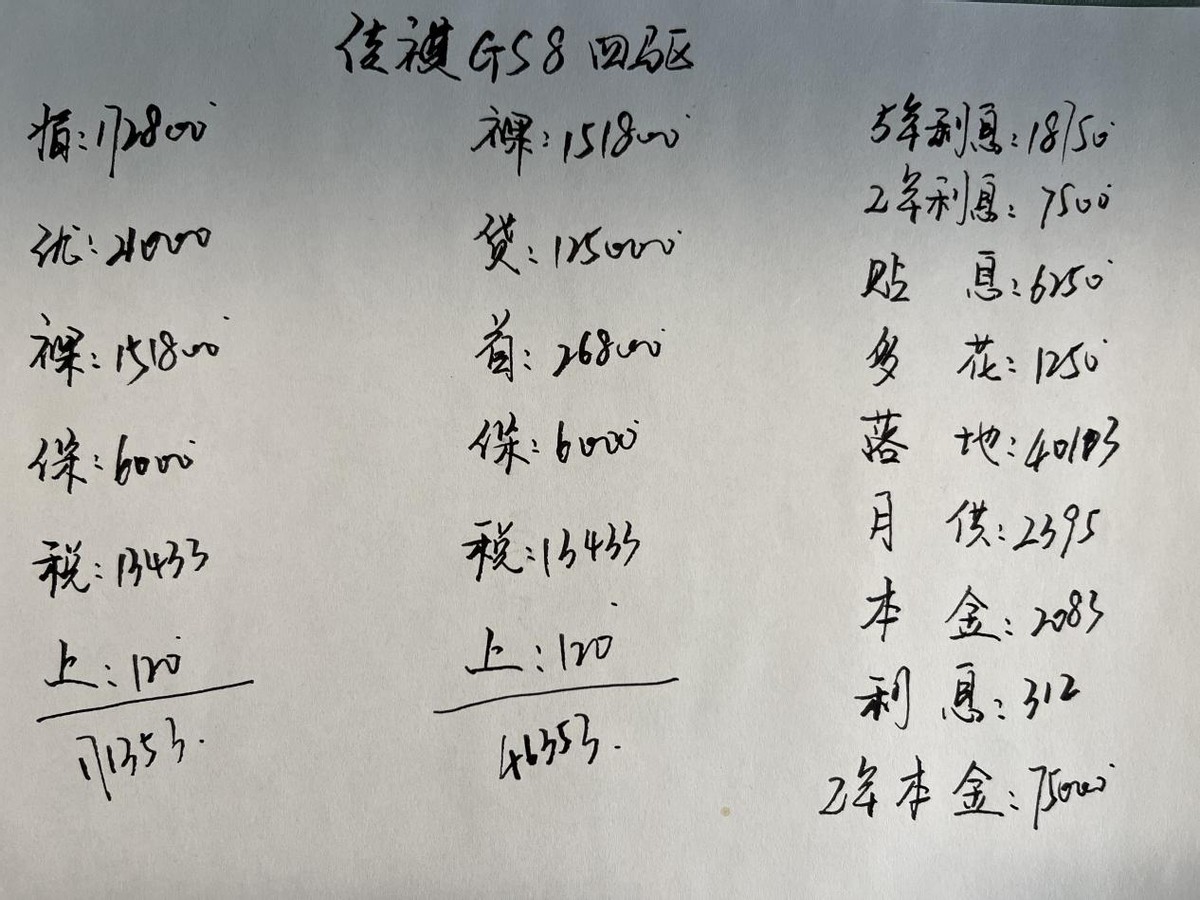 传祺GS8四驱
指:172800
优:21000
裸:151800
保:6000
税:13433
上:120
171353.
裸:151800
贷:125000
首:26800
保:6000
税:13433
上:120
46353.
5年利息:18750
2年利息:7500
贴息:6250
多花:1250
落地:40103
月供:2395
本金:2083
利息:312
2年本金:75000